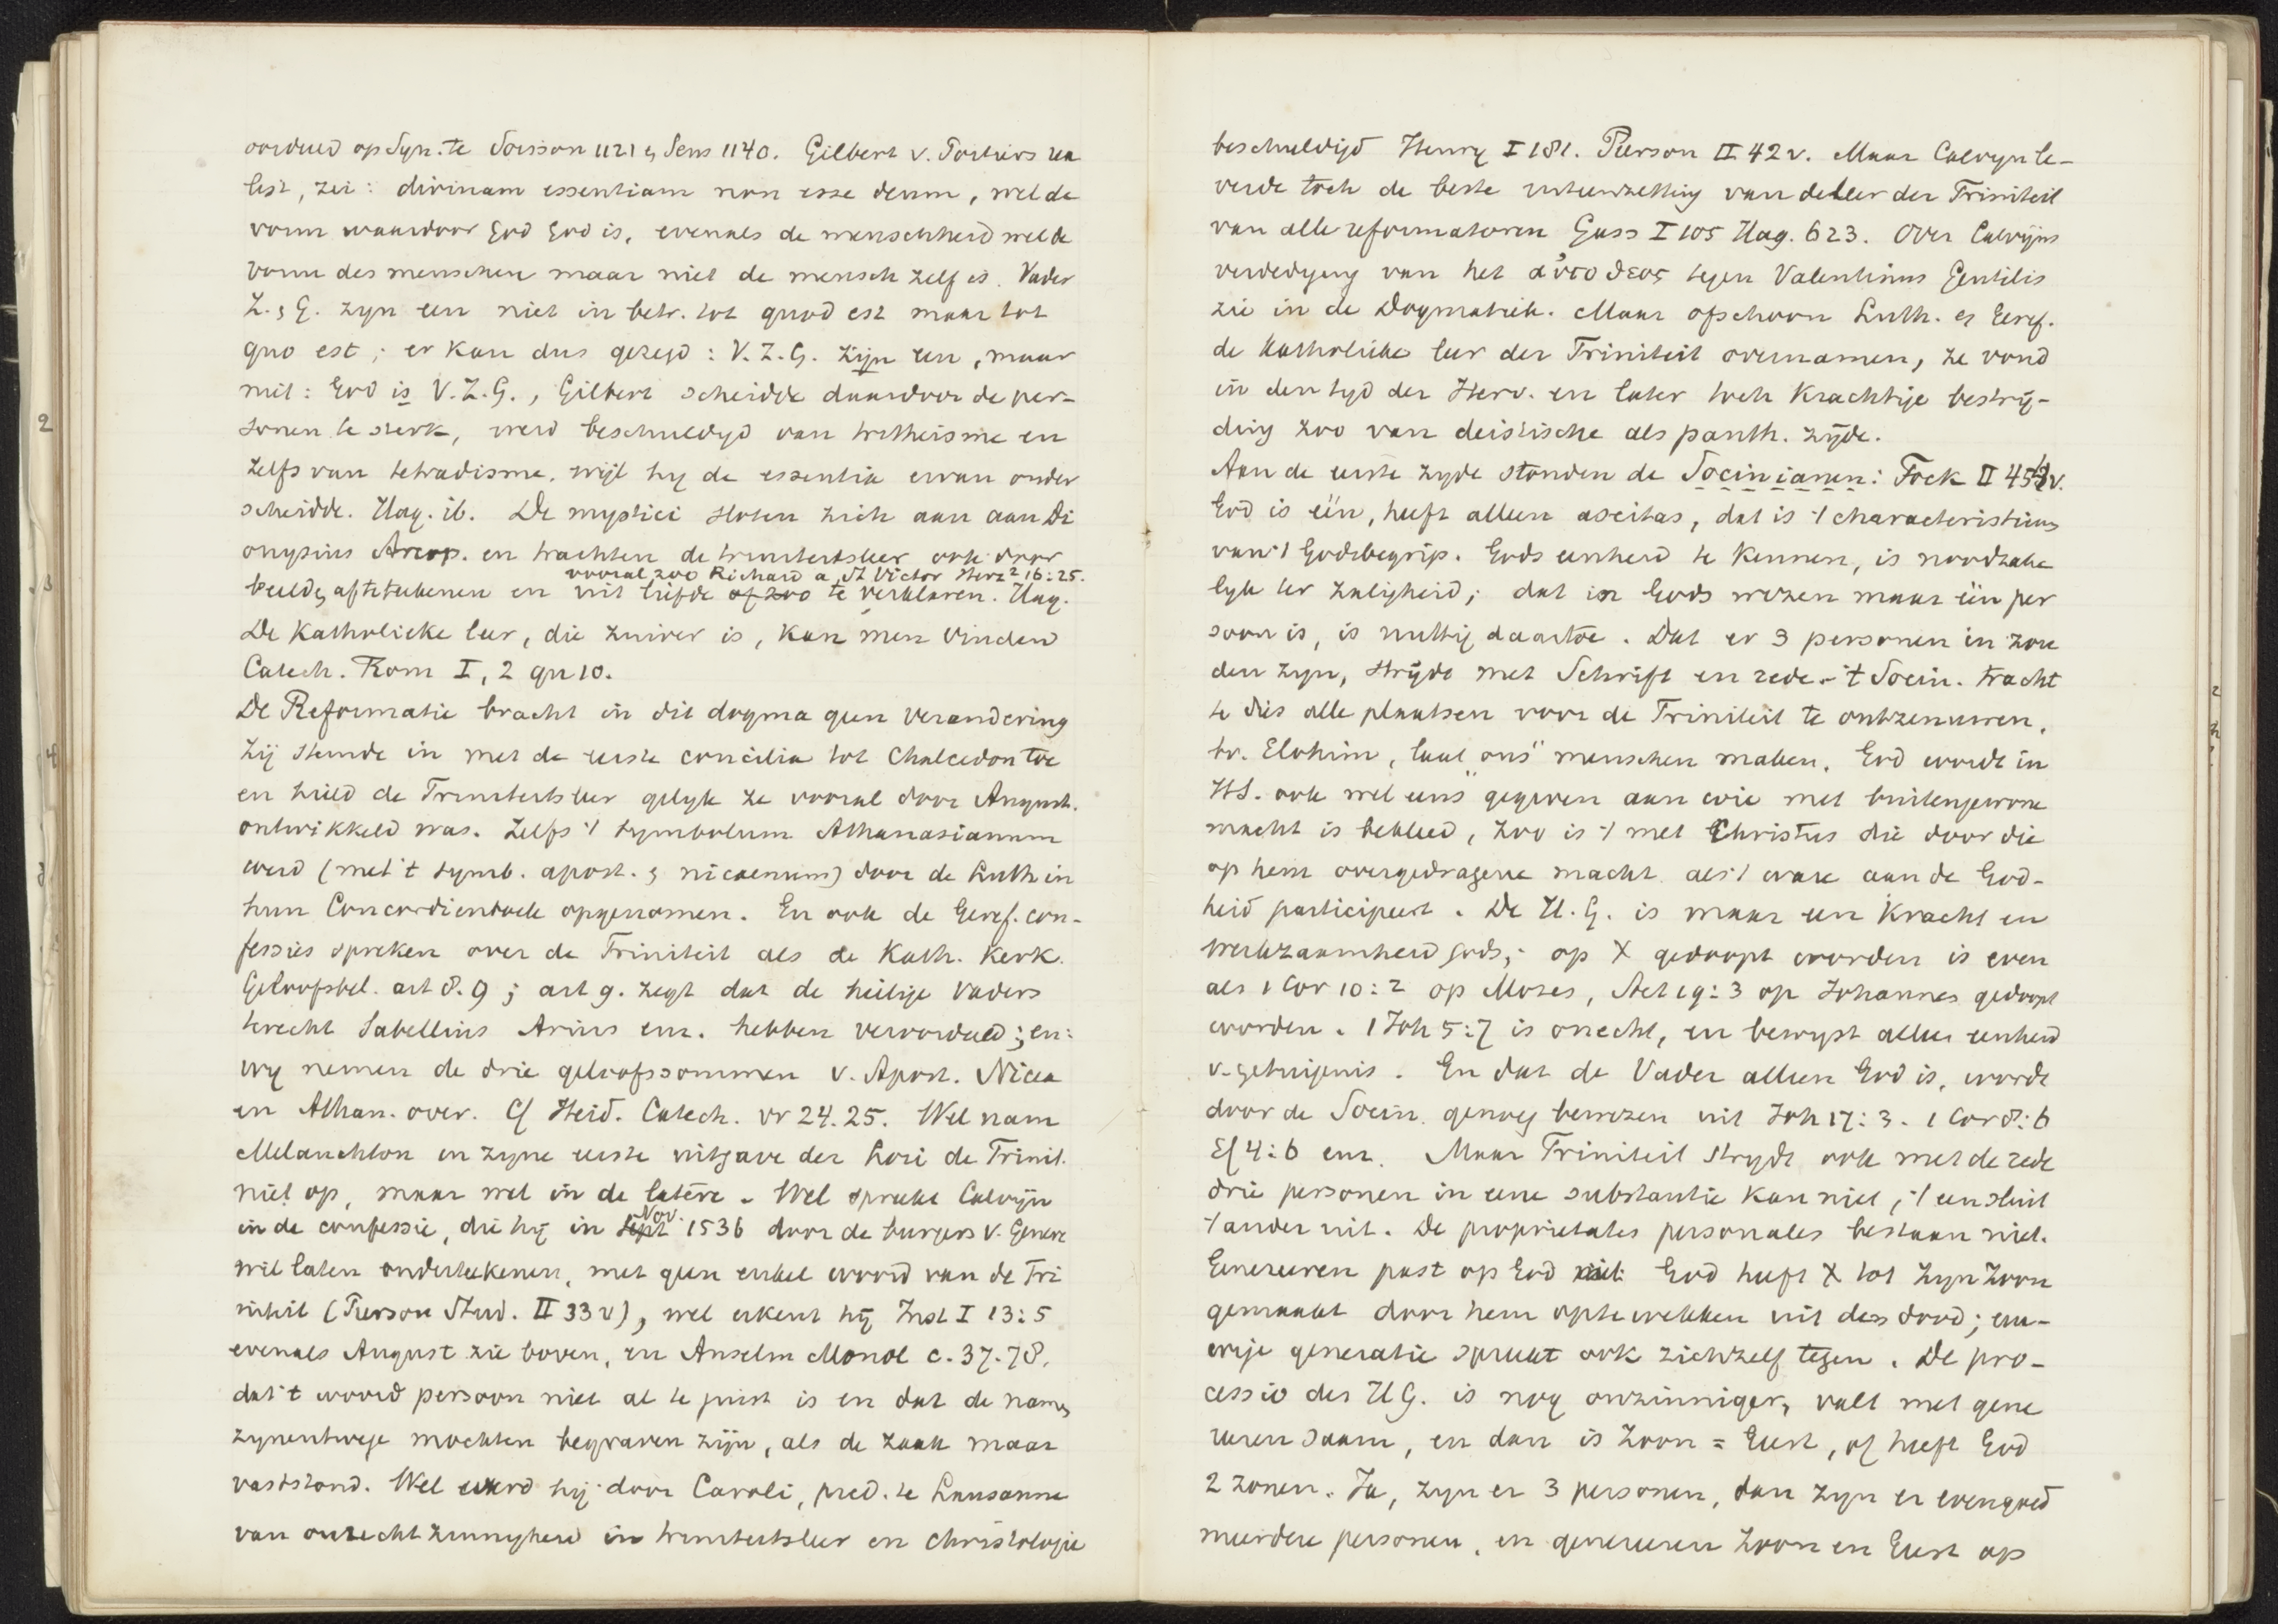 oordeeld op Syn. te Soisson 1121 & Sens 1140. Gilbert v. Poitiers rea
list, zei: divinam essentiam non esse deum, wel de
vorm waardoor God God is, evenals de menschheid wel de
vorm des menschen maar niet de mensch zelf is. Vader
Z. & G. zyn een niet in betr. tot quod est maar tot
quo est; er kan dus gezegd: V.Z.G. zijn een, maar
niet: God is V.Z.G., Gilbert scheidde daardoor de per-
sonen te sterk, werd beschuldigd van tritheisme en
zelfs van tetradisme. wijl hy de essentia ervan onder
scheidde. Hag. ib. De mystici sloten zich aan aan Di
onysius Areop. en trachten de triniteitsleer ook door
vooral zoo Richard a St Victor Herz² 16:25.
beelden afteteekenen en uit liefde of zoo te verklaren. Hag.
De Katholieke leer, die zuiver is, kan men vinden
Catech. Rom I, 2 qu 10.
De Reformatie bracht in dit dogma geen verandering
Zij stemde in met de eerste concilia tot Chalcedon toe
en hield de Triniteitsleer gelyk ze vooral door August.
ontwikkeld was. Zelfs 't symbolum Athanasianum
werd (met 't symb. apost. & nicaenum) door de Luth in
hun Concordienboek opgenomen. En ook de Geref. con-
fessies spreken over de Triniteit als de Kath. Kerk.
Geloofsbel. art 8. 9; art 9. zegt dat de heilige Vaders
terecht Sabellius Arius enz. hebben veroordeeld; en:
wy nemen de drie geloofssommen v. Apost. Nicea
en Athan. over. Cf Heid. Catech. vr 24.25. Wel nam
Melanchton in zyne eerste uitgave der Loci de Trinit.
niet op, maar wel in de latere. Wel spreekt Calvijn
in de confessie, die hij in Sept Nov. 1536 door de burgers v. Geneve
wil laten onderteekenen, met geen enkel woord van de Tri
niteit (Pierson Stud. II 33 v), wel erkent hij Inst I 13:5
evenals August. zie boven, en Anselm Monol c. 37.78.
dat 't woord persoon niet al te juist is en dat de namen
zynentwege mochten begraven zijn, als de zaak maar
vaststond. Wel werd hij door Caroli, pred. te Lausanne
van onrechtzinnigheid in triniteitsleer en christologie
beschuldigd Henry I 181. Pierson II 42 v. Maar Calvyn le-
verde toch de beste uiteenzetting van de leer der Triniteit
van alle reformatoren Gass I 105 Hag. 623. Over Calvijns
verdediging van het αὐτοθεος tegen Valentinus Gentilis
zie in de Dogmatiek. Maar ofschoon Luth. & Geref.
de Katholieke leer der Triniteit overnamen, ze vond
in den tyd der Herv. en later toch krachtige bestrij-
ding zoo van deistische als panth. zijde.
Aan de eerste zyde stonden de Socinianen: Fock II 454v.
God is één, heeft alleen aseitas, dat is 't characteristicum
van 't Godsbegrip. Gods eenheid te kennen, is noodzake
lyk ter zaligheid; dat in Gods wezen maar één per
soon is, is nuttig daartoe. Dat er 3 personen in zou
den zyn, strijdt met Schrift en rede. 't Socin. tracht
te dus alle plaatsen voor de Triniteit te ontzenuwen.
bv. Elohim, laat "ons" menschen maken. God wordt in
HS. ook wel eens gegeven aan wie met buitengewone
macht is bekleed, zoo is 't met Christus die door die
op hem overgedragene macht als 't ware aan de God-
heid participeert. De H.G. is maar een kracht en
werkzaamheid Gods; op X gedoopt worden is even
als 1 Cor 10:2 op Mozes, Act 19:3 op Johannes gedoopt
worden. 1 Joh 5:7 is onecht, en bewyst alleen eenheid
v. getuigenis. En dat de Vader alleen God is, wordt
door de Socin. genoeg bewezen uit Joh 17:3. 1 Cor 8:6
Ef 4:6 enz. Maar Triniteit strydt ook met de rede
drie personen in eene substantie kan niet, 't een sluit
't ander uit. De proprietates personales bestaan niet.
Genereeren past op God niet. God heeft X tot zyn Zoon
gemaakt door hem optewekken uit den dood; eeu-
wige generatie spreekt ook zichzelf tegen. De pro-
cessio des HG. is nog onzinniger, valt met gene
reeren saam, en dan is Zoon = Geest, of heeft God
2 zonen. Ja, zyn er 3 personen, dan zyn er evengoed
meerdere personen, en genereeren Zoon en Geest op